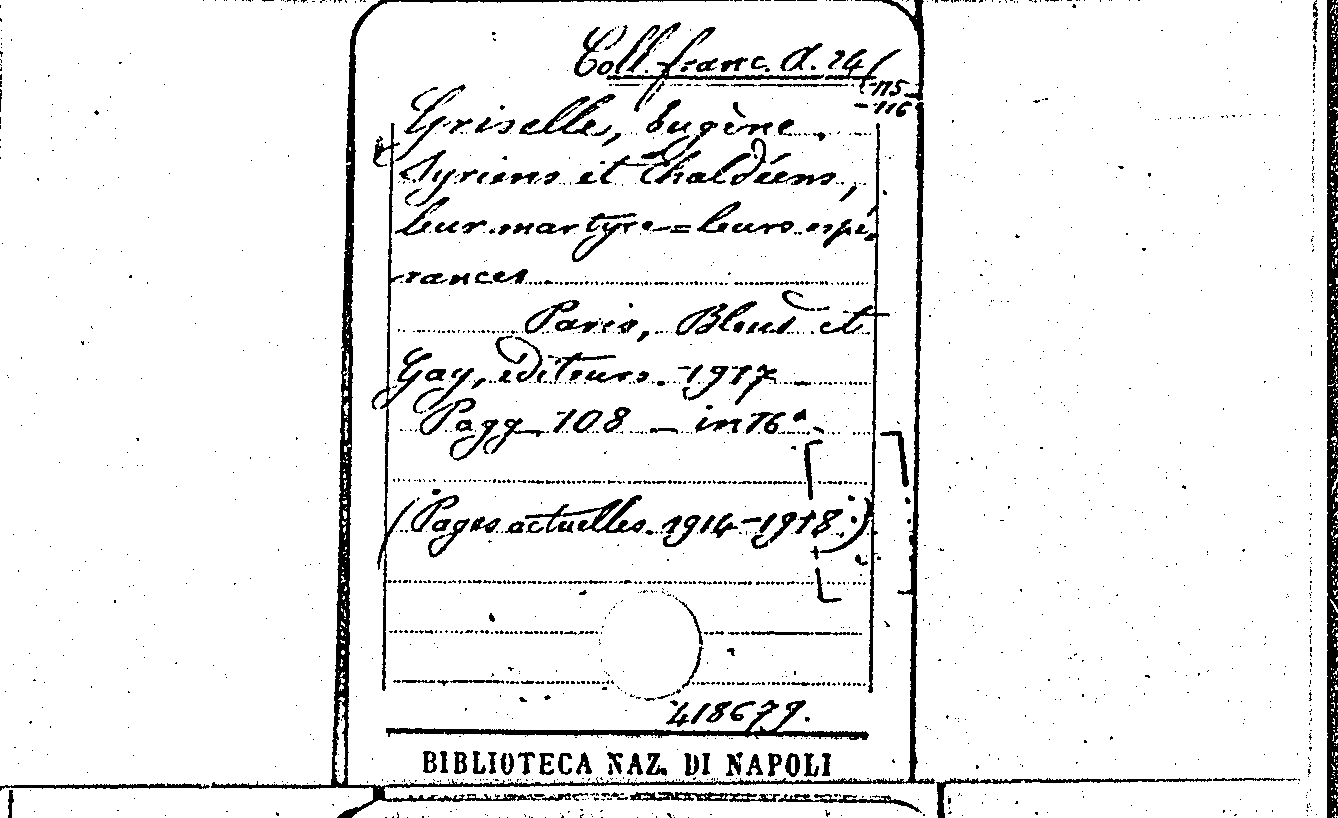 Coll. franc. A. 24 (
-115-
-116
Griselle, Eugène.
Syriens et Chaldéens,
leur martyre = leurs espé-
rances
Paris, Bloud et
Gay, éditeurs. 1917
Pagg. 108 - in 16°
(Pages actuelles. 1914-1918.)
418679.
BIBLIOTECA NAZ. DI NAPOLI